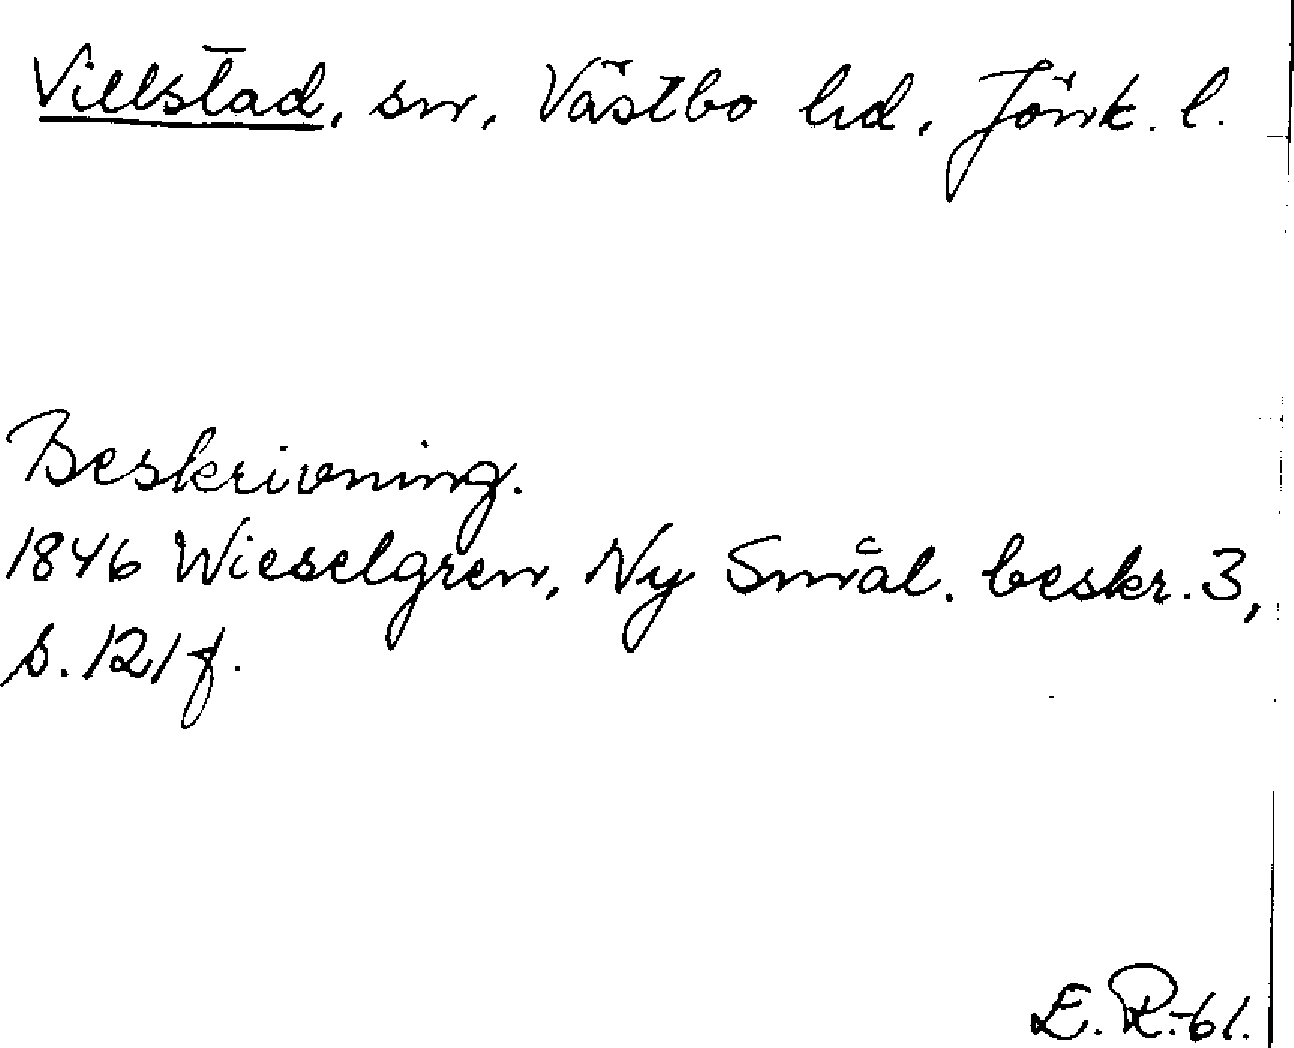 Villstad, sn, Västbo hd, Jönk. l.
Beskrivning.
1846 Wieselgren, Ny Smål. beskr. 3,
s. 121 f.
E. R. -61.